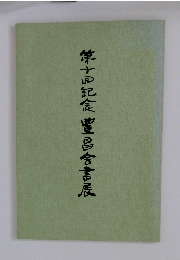 第十回記念 豊昌会書展